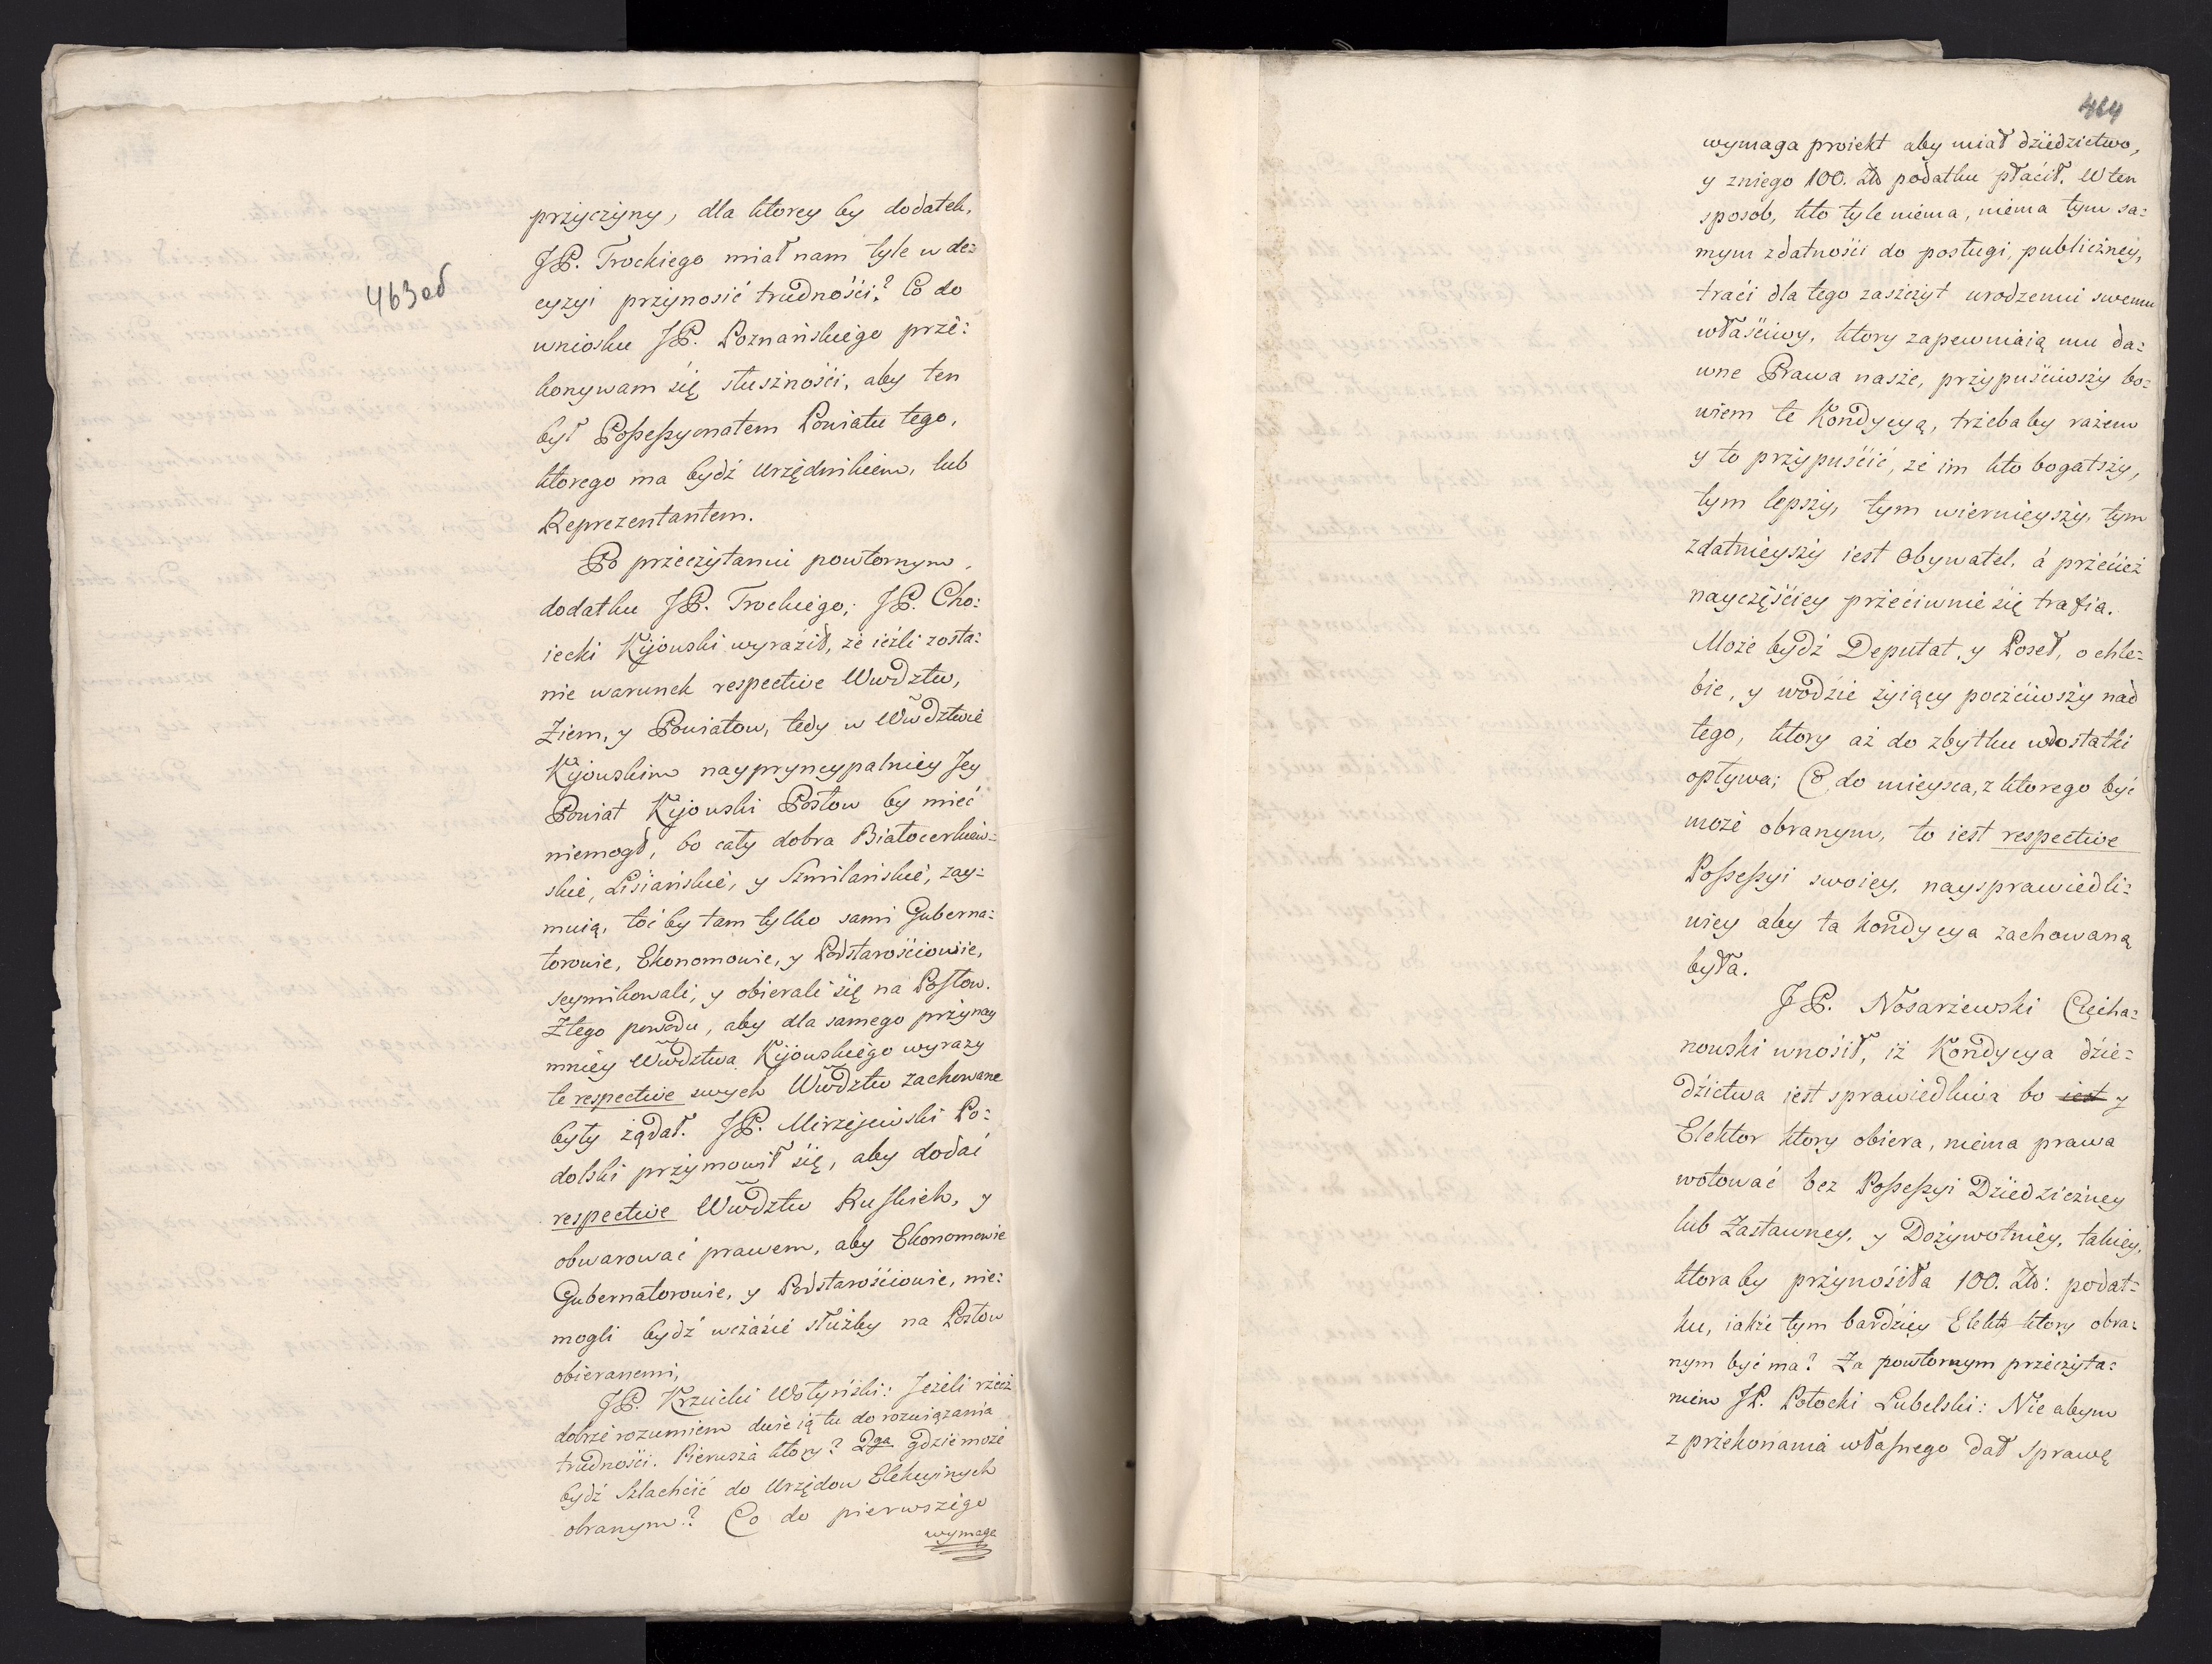 463об
przyczyny, dla ktorey by dodatek,
JP. Trockiego miał nam tyle w de=
cyzyi przynosić trudności? Co do
wniosku JP. Poznańskiego prze=
konywam się słuszności, aby ten
był Possessyonatem Powiatu tego,
ktorego ma bydź Urzędnikiem, lub
Reprezentantem.
Po przeczytaniu powtornym,
dodatku JP. Trockiego; JP. Cho=
iecki Kijowski wyraził, że ieżli zosta=
nie warunek respective Wwdztw,
Ziem, y Powiatow, tedy w Wwdztwie
Kijowskim naypryncypalniey Jey
Powiat Kijowski Posłow by mieć
niemogł, bo cały dobra Białocerkiew=
skie, Lisiańskie, y Szmilańskie, zay=
muią, toć by tam tylko sami Guberna=
torowie, Ekonomowie, y Podstarościowie,
seymikowali, y obierali się na Posłow.
Ztego powodu, aby dla samego przynay
mniey Wwdztwa Kijowskiego wyrazy
te respective swych Wwdztw zachowane
były żądał. JP. Mirzejewski Po=
dolski przymowił się, aby dodać
respective Wwdztw Ruskich, y
obwarować prawem, aby Ekonomowie
Gubernatorowie, y Podstarościowie, nie=
mogli bydź wczasie służby na Posłow
obieranemi,
JP. Krzucki Wołyński: Jeżeli rzecz
dobrze rozumiem dwie ią tu do rozwiązania
trudności. Pierwsza ktory? 2ga gdzie może
bydź Szlachcic do Urzędow Elekcyinych
obranym? Co do pierwszego
wymaga
464
wymaga proiekt aby miał dziedzictwo,
y zniego 100. Zło podatku płacił. W ten
sposob, kto tyle niema, niema tym sa=
mym zdatności do posługi, publiczney,
traci dla tego zaszczyt urodzeniu swemu
właściwy, ktory zapewniaią mu da=
wne Prawa nasze, przypuściwszy bo=
wiem te Kondycyą, trzebaby razem
y to przypuścić, że im kto bogatszy,
tym lepszy, tym wiernieyszy, tym
zdatnieyszy iest Obywatel, á przecież
nayczęściey przeciwnie się trafia.
Może bydź Deputat, y Poseł, o chle=
bie, y wodzie żyiący poczciwszy nad
tego, ktory aż do zbytku wdostatki
opływa; Co do mieysca, z ktorego być
może obranym, to iest respective
Possessyi swoiey, naysprawiedli=
wiey aby ta kondycya zachowaną
była.
JP. Nosarzewski Ciecha=
nowski wnosił, iż Kondycya dzie=
dzictwa jest sprawiedliwa bo iest y
Elektor ktory obiera, niema prawa
wotować bez Possessyi Dziedziczney
lub Zastawney, y Dożywotniey, takiey,
ktoraby przynosiła 100. Zło: podat=
ku, iakże tym bardziey Elekt ktory obra=
nym być ma? Za powtornym przeczyta=
niem JP. Potocki Lubelski: Nie abym
z przekonania własnego dał sprawę